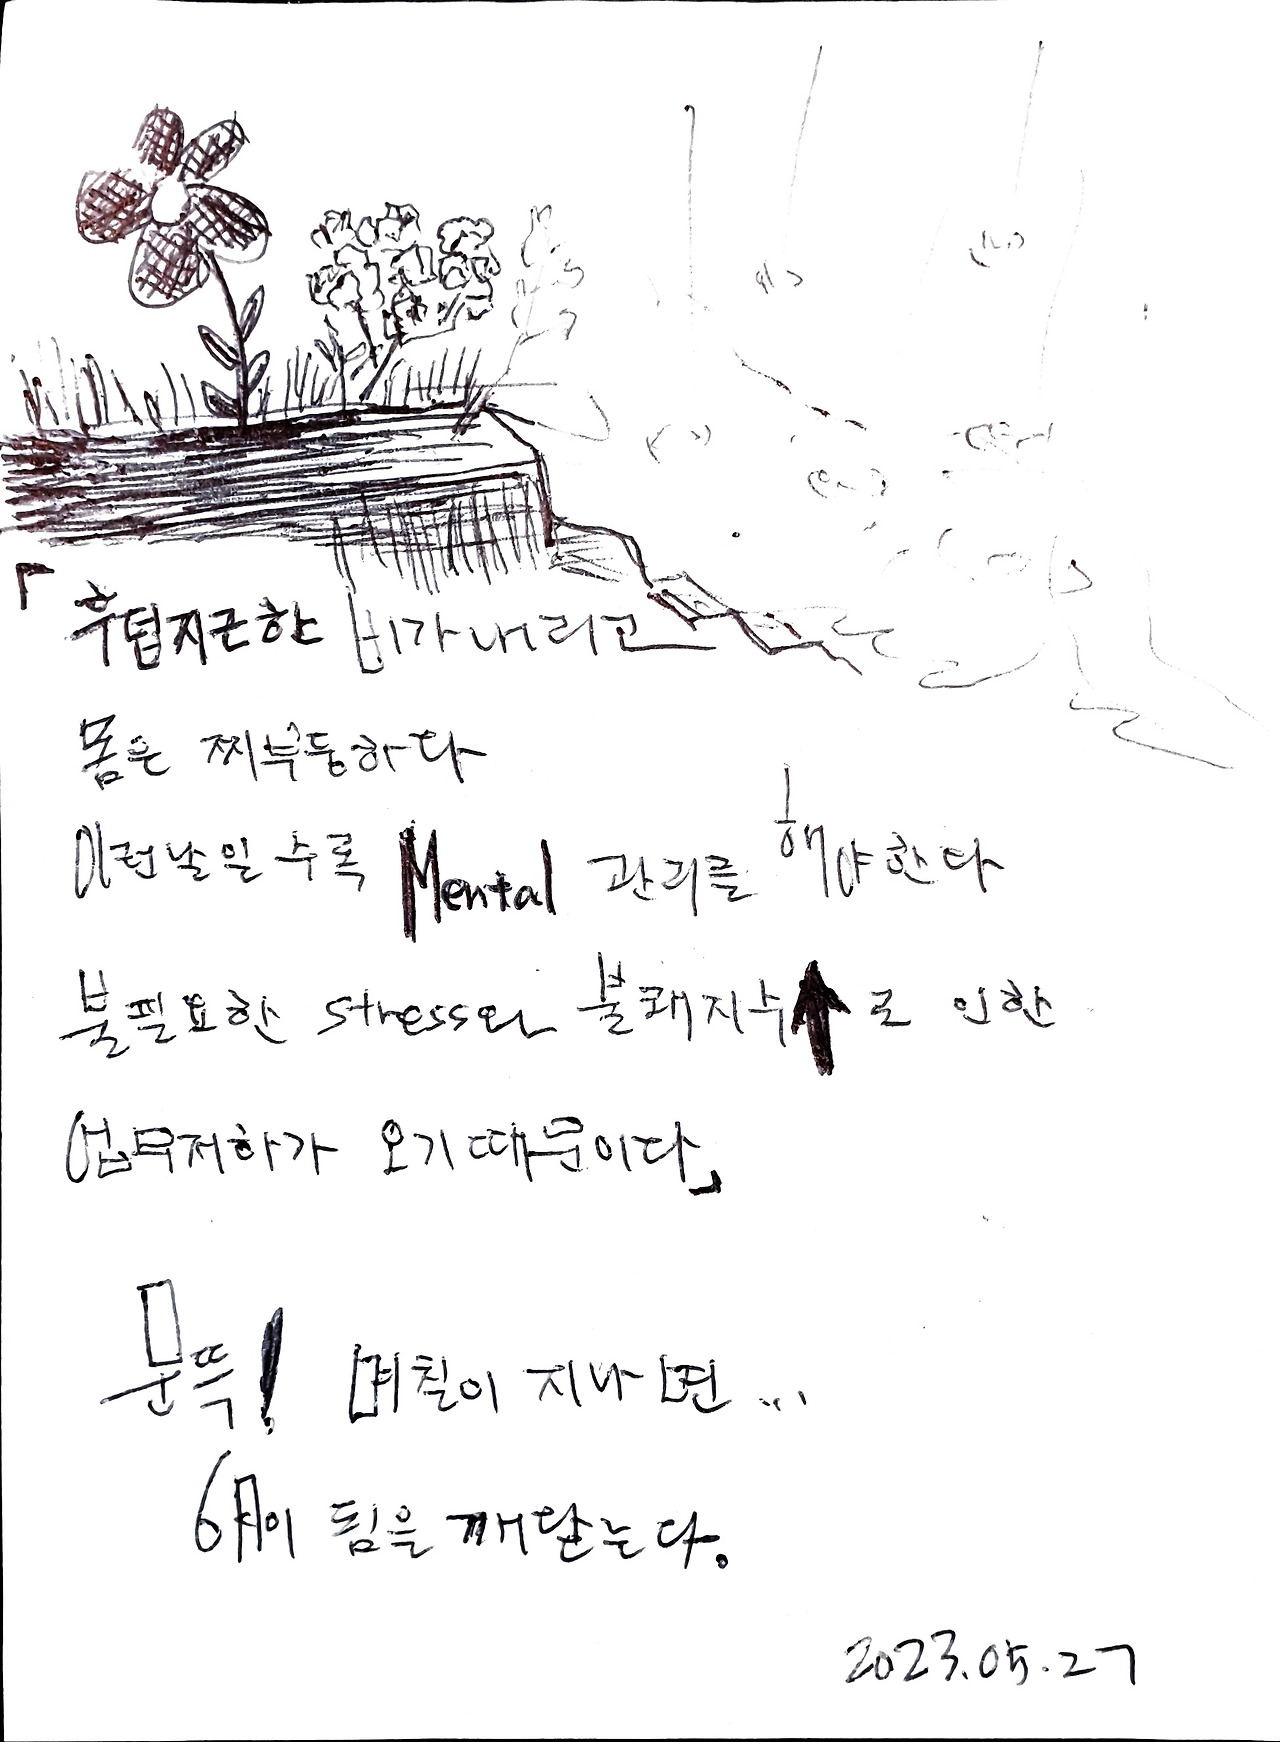 「후텁지근한 비가 내리고
몸은 찌부둥하다
이런날일수록 Mental 관리를 해야한다
불필요한 stress와 불쾌지수↑로 인한
업무저하가 오기 때문이다」
문뜩! 며칠이 지나면...
6月이 됨을 깨닫는다.
2023.05.27